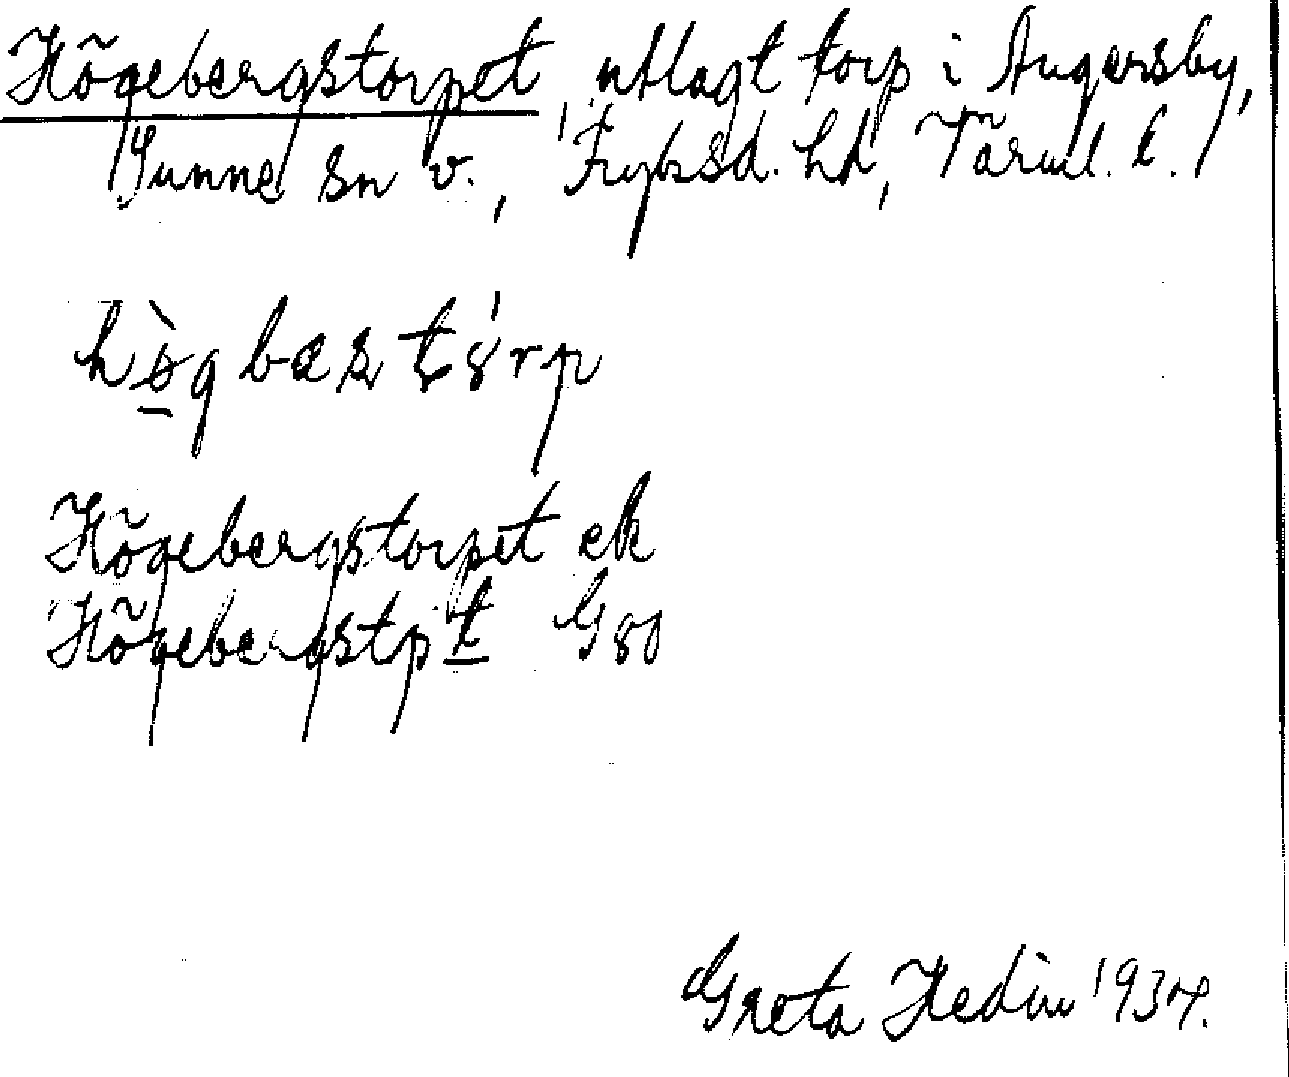 Högebergstorpet, utlagt torp i Ängersby,
Sunne sn v., Fryksd. hd, Värml. l.
hø̀gbæstórp
Högebergstorpet ek
Högebergstpt G80
Greta Hedin 1934.